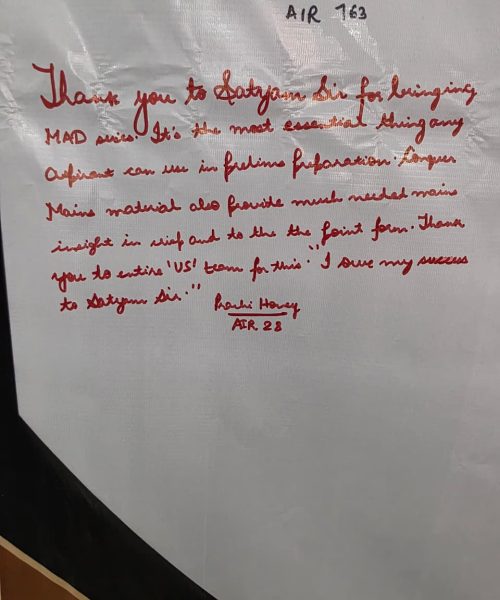 AIR 763
Thank you to Satyam Sir for bringing
MAD series. It's the most essential thing any
aspirant can use in prelims preparation. Conquer
Mains material also provide much needed mains
insight in crisp and to the the point form. Thank
you to entire 'US' team for this. "I owe my success
to Satyam Sir."
AIR 28